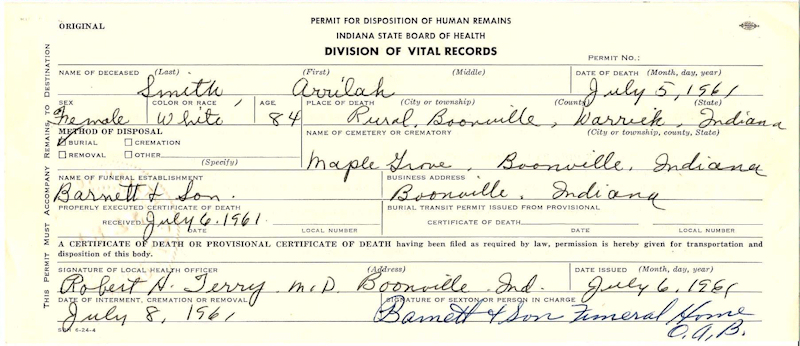 ORIGINAL
PERMIT FOR DISPOSITION OF HUMAN REMAINS
INDIANA STATE BOARD OF HEALTH
DIVISION OF VITAL RECORDS
PERMIT NO.:
THIS PERMIT MUST ACCOMPANY REMAINS TO DESTINATION
NAME OF DECEASED (Last) (First) (Middle) DATE OF DEATH (Month, day, year)
Smith, Arrilah July 5, 1961
SEX COLOR OR RACE AGE PLACE OF DEATH (City or township) (County) (State)
Female White 84 Rural, Boonville, Warrick, Indiana
METHOD OF DISPOSAL NAME OF CEMETERY OR CREMATORY (City or township, county, State)
BURIAL CREMATION
REMOVAL OTHER
(Specify)
Maple Grove, Boonville, Indiana
NAME OF FUNERAL ESTABLISHMENT BUSINESS ADDRESS
Barnett & Son Boonville, Indiana
PROPERLY EXECUTED CERTIFICATE OF DEATH BURIAL TRANSIT PERMIT ISSUED FROM PROVISIONAL
RECEIVED July 6, 1961 CERTIFICATE OF DEATH
DATE LOCAL NUMBER DATE LOCAL NUMBER
A CERTIFICATE OF DEATH OR PROVISIONAL CERTIFICATE OF DEATH having been filed as required by law, permission is hereby given for transportation and
disposition of this body.
SIGNATURE OF LOCAL HEALTH OFFICER (Address) DATE ISSUED (Month, day, year)
Robert H. Terry M.D. Boonville Ind. July 6, 1961
DATE OF INTERMENT, CREMATION OR REMOVAL SIGNATURE OF SEXTON OR PERSON IN CHARGE
July 8, 1961 Barnett & Son Funeral Home
O.A.B.
6-24-4